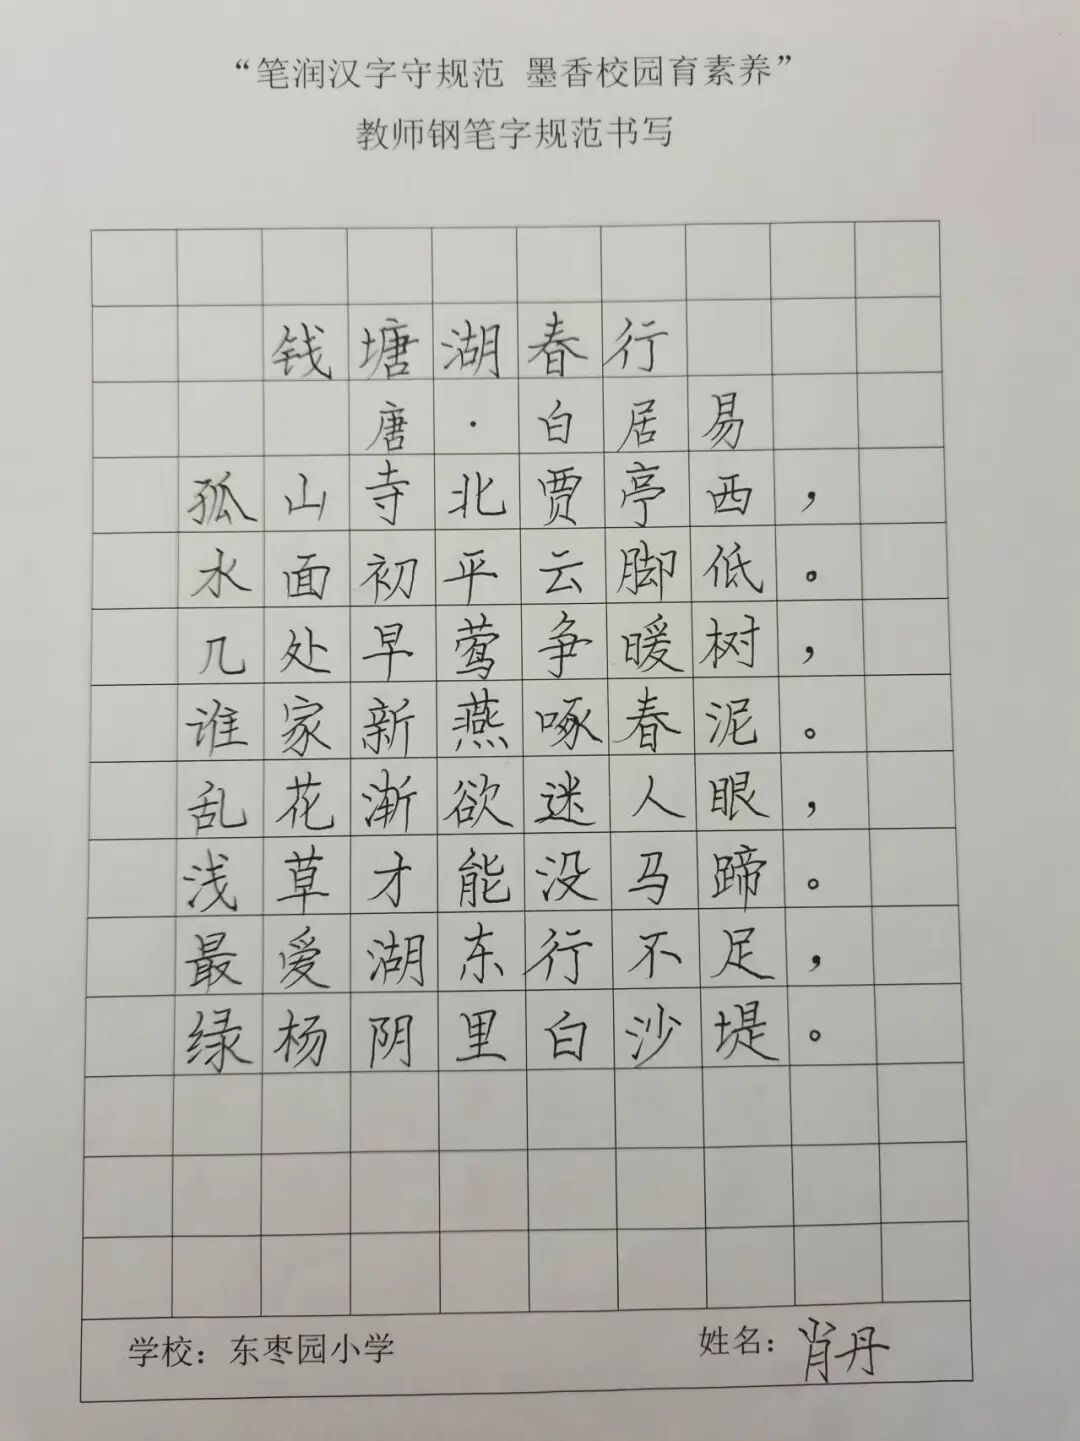 “笔润汉字守规范 墨香校园育素养”
教师钢笔字规范书写
钱塘湖春行
唐·白居易
孤山寺北贾亭西，
水面初平云脚低。
几处早莺争暖树，
谁家新燕啄春泥。
乱花渐欲迷人眼，
浅草才能没马蹄。
最爱湖东行不足，
绿杨阴里白沙堤。
学校：东枣园小学 姓名：肖丹